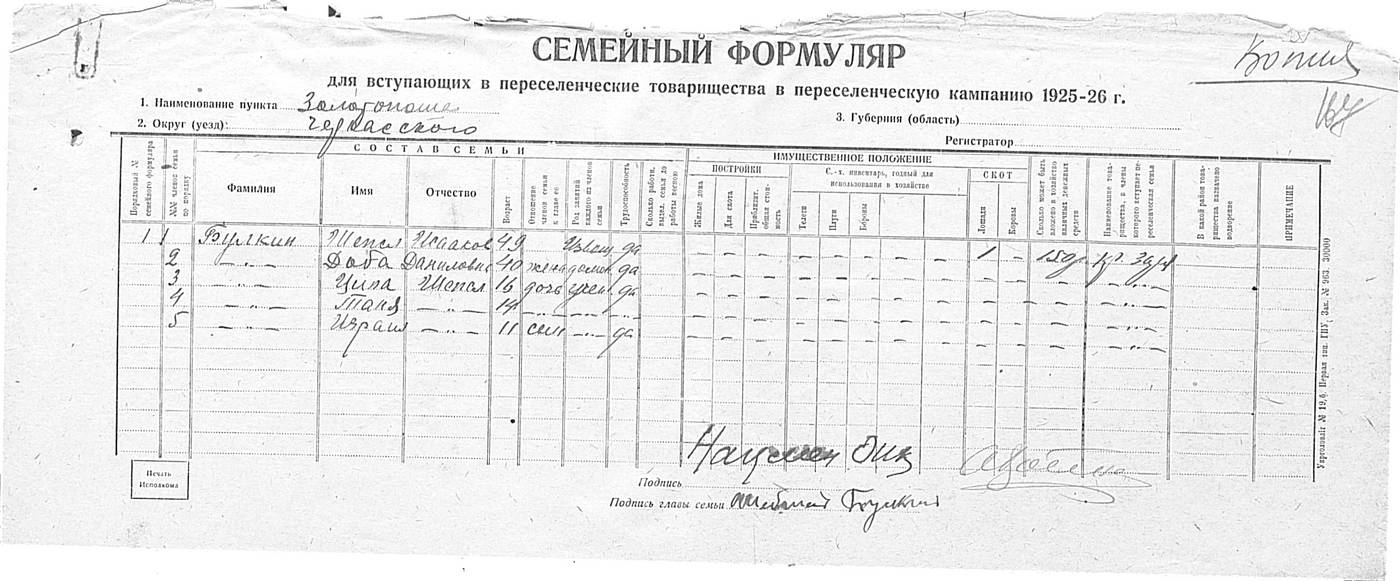 СЕМЕЙНЫЙ ФОРМУЛЯР
Копия
для вступающих в переселенческие товарищества в переселенческую кампанию 1925-26 г.
1. Наименование пункта Золотоноша
2. Округ (уезд): Черкасского
3. Губерния (область)
Регистратор
СОСТАВ СЕМЬИ
ИМУЩЕСТВЕННОЕ ПОЛОЖЕНИЕ
ПОСТРОЙКИ
С.-х. инвентарь, годный для использования в хозяйстве
СКОТ
Порядковый № семейного формуляра
№№ членов семьи по порядку
Фамилия
Имя
Отчество
Возраст
Отношение членов семьи к главе ее
Род занятий каждого из членов семьи
Трудоспособность
Сколько работн. выдел. семья до работы весною
Жилые дома
Для скота
Приблизит. общая стоимость
Телеги
Плуги
Бороны
Лошади
Коровы
Сколько может быть вложено в хозяйство наличных денежных средств
Наименование товарищества, в члены которого вступает переселенческая семья
В какой район товарищества назначено водворение
ПРИМЕЧАНИЕ
1 1 Булкин Шепсл Исааков 49 Извощ да 1 150р.
2 — " — Доба Даниловна 40 жена домош да — — — — — — — — — —
3 — " — Ципа Шепсл 16 дочь учен да — — — — — — — — — —
4 — " — Таня — " — 14 — " — — " — — " — — — — — — — — — — —
5 — " — Израил — " — 11 сын — " — да — — — — — — — — — —
Нацмен Вик
Печать Исполкома
Подпись
Подпись главы семьи Булкин
Укрголовліт № 19,6. Первая тип. ГПУ, Зак. № 963. 30000